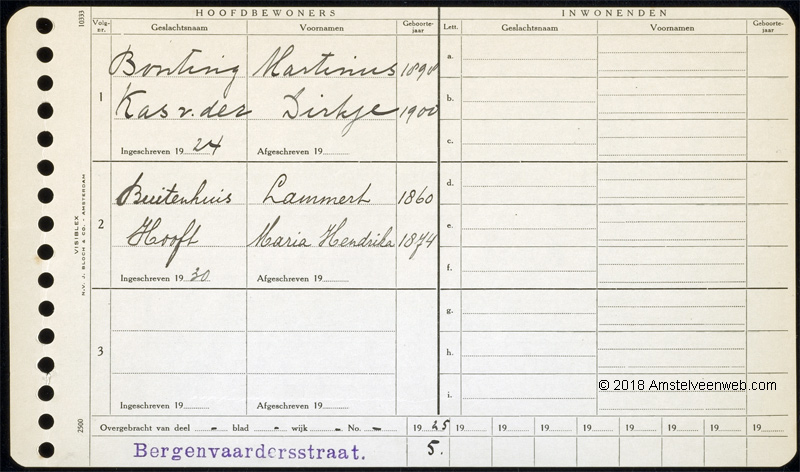 HOOFDBEWONERS INWONENDEN
Volg-nr. Geslachtsnaam Voornamen Geboorte-jaar Lett. Geslachtsnaam Voornamen Geboorte-jaar
10333
1
Bonting Martinus 1898 a.
Kas v. der Dirkje 1900 b.
c.
Ingeschreven 1924 Afgeschreven 19
2
Buitenhuis Lammert 1860 d.
Hooft Maria Hendrika 1874 e.
f.
Ingeschreven 1930 Afgeschreven 19
3
g.
h.
i.
Ingeschreven 19 Afgeschreven 19
VISIBLEX
N.V. J. BLOCH & CO., AMSTERDAM
2500
© 2018 Amstelveenweb.com
Overgebracht van deel - blad - wijk - No. - 1925 19 19 19 19 19 19 19 19
Bergenvaardersstraat. 5.